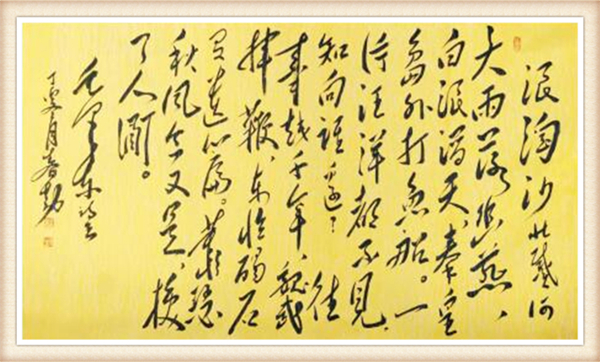 浪淘沙北戴河
大雨落幽燕、
白浪滔天、秦皇
岛外打鱼船。一
片汪洋都不见
知向谁边？往
事越千年、魏武
挥鞭、东临碣石
有遗篇。萧瑟
秋风今又是、换
了人间。
毛泽东
月春